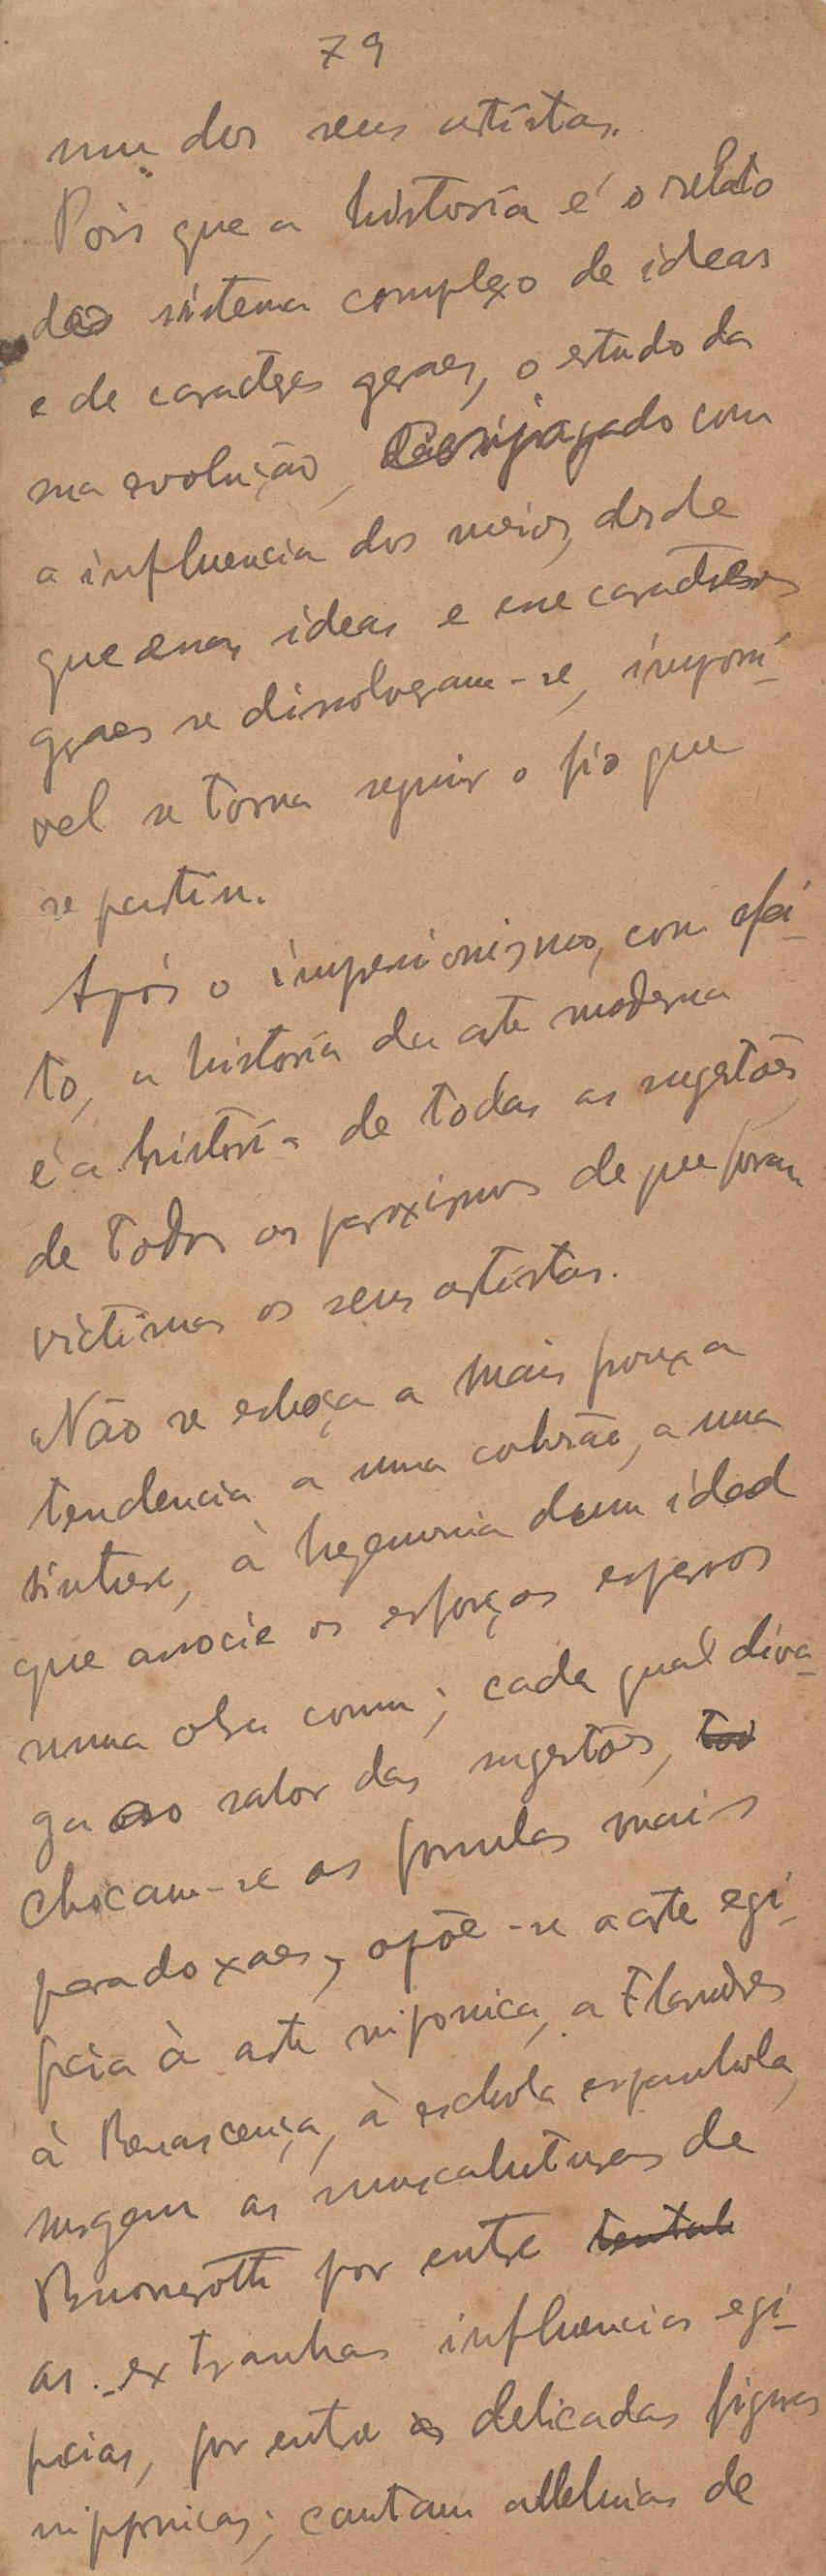 79
um dos seus artistas.
Pois que a historia é o relato
do sistema complexo de ideas
e de caracteres geraes, o estudo da
sua evolução, conjugado com
a influencia dos meios, desde
que essas ideas e esse caracteres
geraes se dissolveram-se, impossi-
vel se torna seguir o fio que
se partiu.
Após o impressionismo, com efei-
to, a historia da arte moderna
é a historia de todas as sugestões,
de todos os paroxismos de que foram
victimas os seus artistas.
Não se esboça a mais frouxa
tendencia a uma cohesão, a uma
sintese, à hegemonia dum ideal
que associe os esforços esparsos
numa obra comum; cada qual diva-
ga ao sabor das sugestões,
chocam-se as formulas mais
paradoxaes, opõe-se a arte egi-
pcia à arte niponica, a Flandres
à Renascença, à eschola espanhola,
surgem as musculaturas de
Buonarotti por entre
as extranhas influencias egi-
pcias, por entre as delicadas figuras
nipponicas; cantam alleluias de